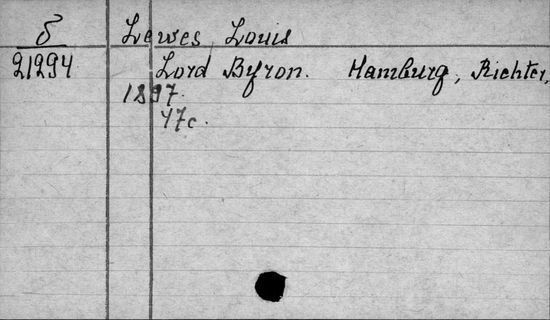 δ Lewes, Louis
21294 Lord Byron. Hamburg, Richter,
1897.
47c.